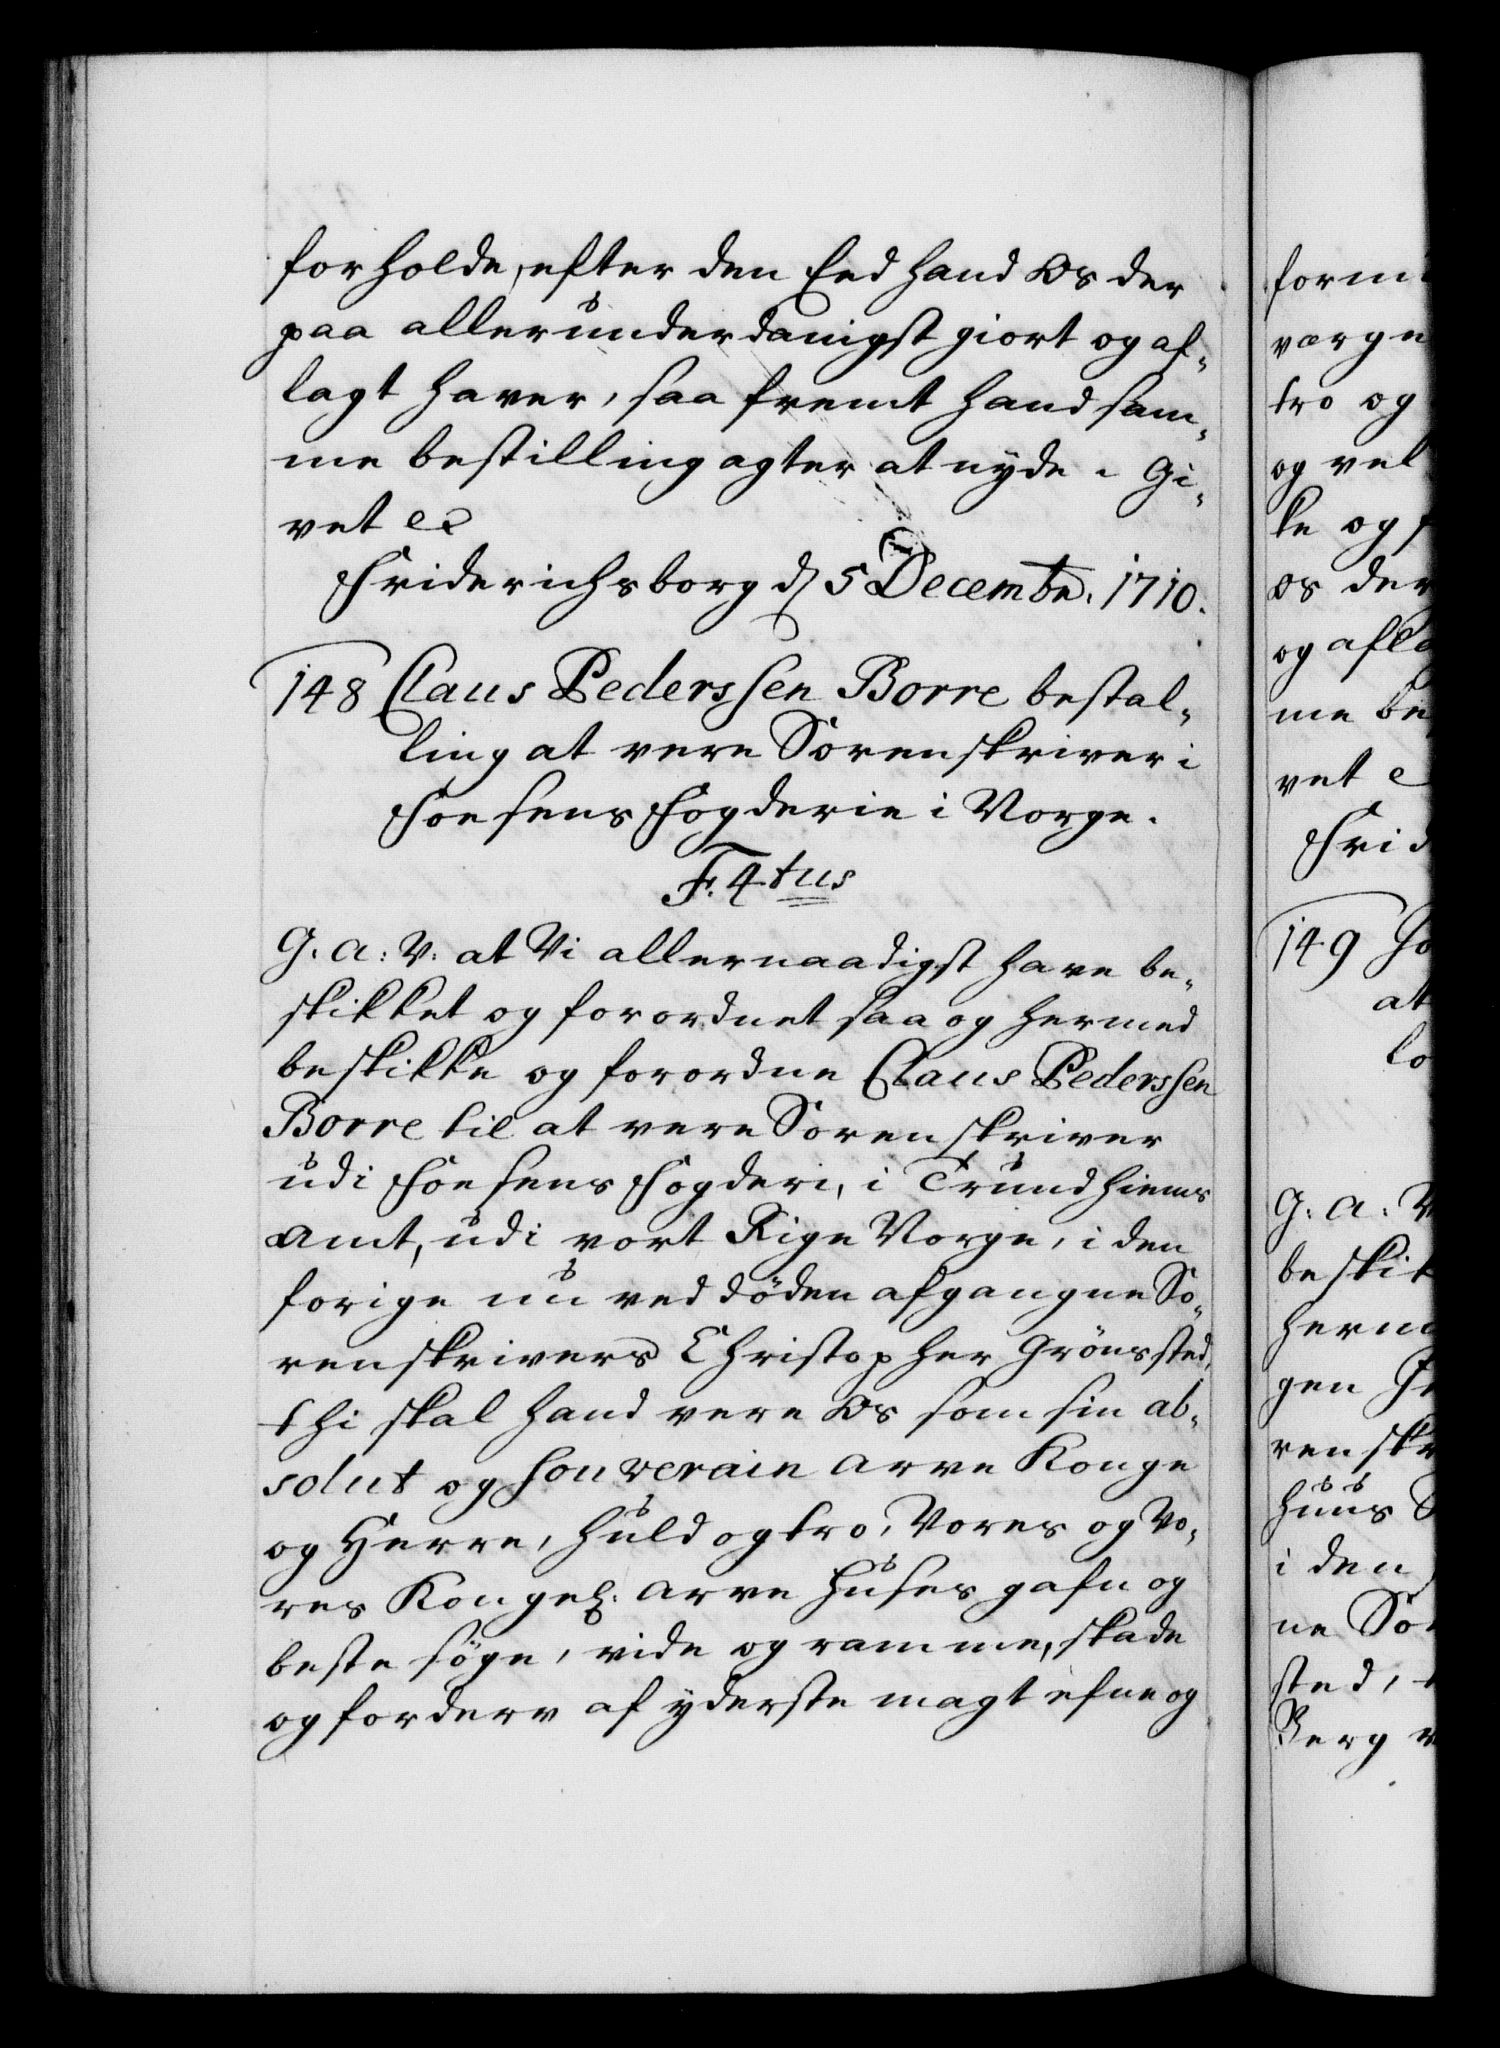 forholde, efter den Eed hand Os der
paa allerunderdanigst giort og af-
lagt haver, saa fremt hand sam-
me bestilling agter at nyde. Gi-
vet etc
Friderichsborg d 5 Decembr. 1710.
148 Claus Pederssen Borre bestal-
ling at vere Sorenskriver i
Foesens Fogderie i Norge.
F. 4tus
G. A: V: at Vi allernaadigst have be-
skikket og forordnet saa og hermed
beskikke og forordne Claus Pederssen
Borre til at vere Sorenskriver
udi Foesens Fogderi, i Trundhiems
Amt, udi vort Rige Norge, i den
forige nu ved döden afgangne So-
renskrivers Christopher Grönssted,
thi skal hand vere Os som sin ab-
solut og souverain Arve Konge
og Herre, huld og tro, Vores og Vo-
res Kongel. Arve Huses gafn og
beste söge, vide og ramme, skade
og forderv af yderste magt efne og
form
værge
tro og
og vel
ke og f
Os der
og afla
me be
vet e
Frid
149 Jo
at
lo
G: A: V
beskik
herm
gen Je
renskr
huus S
i den
ne Sor
sted, t
Berg v